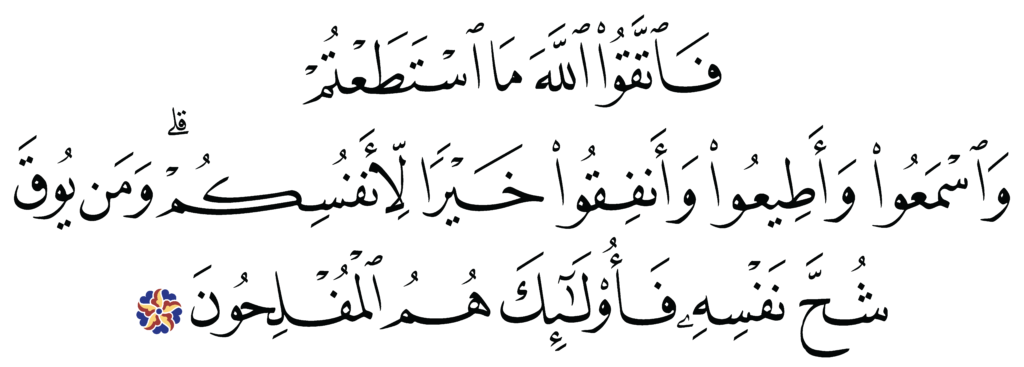 فَٱتَّقُوا۟ ٱللَّهَ مَا ٱسْتَطَعْتُمْ
وَٱسْمَعُوا۟ وَأَطِيعُوا۟ وَأَنفِقُوا۟ خَيْرًا لِّأَنفُسِكُمْ ۗ وَمَن يُوقَ
شُحَّ نَفْسِهِۦ فَأُو۟لَـٰٓئِكَ هُمُ ٱلْمُفْلِحُونَ